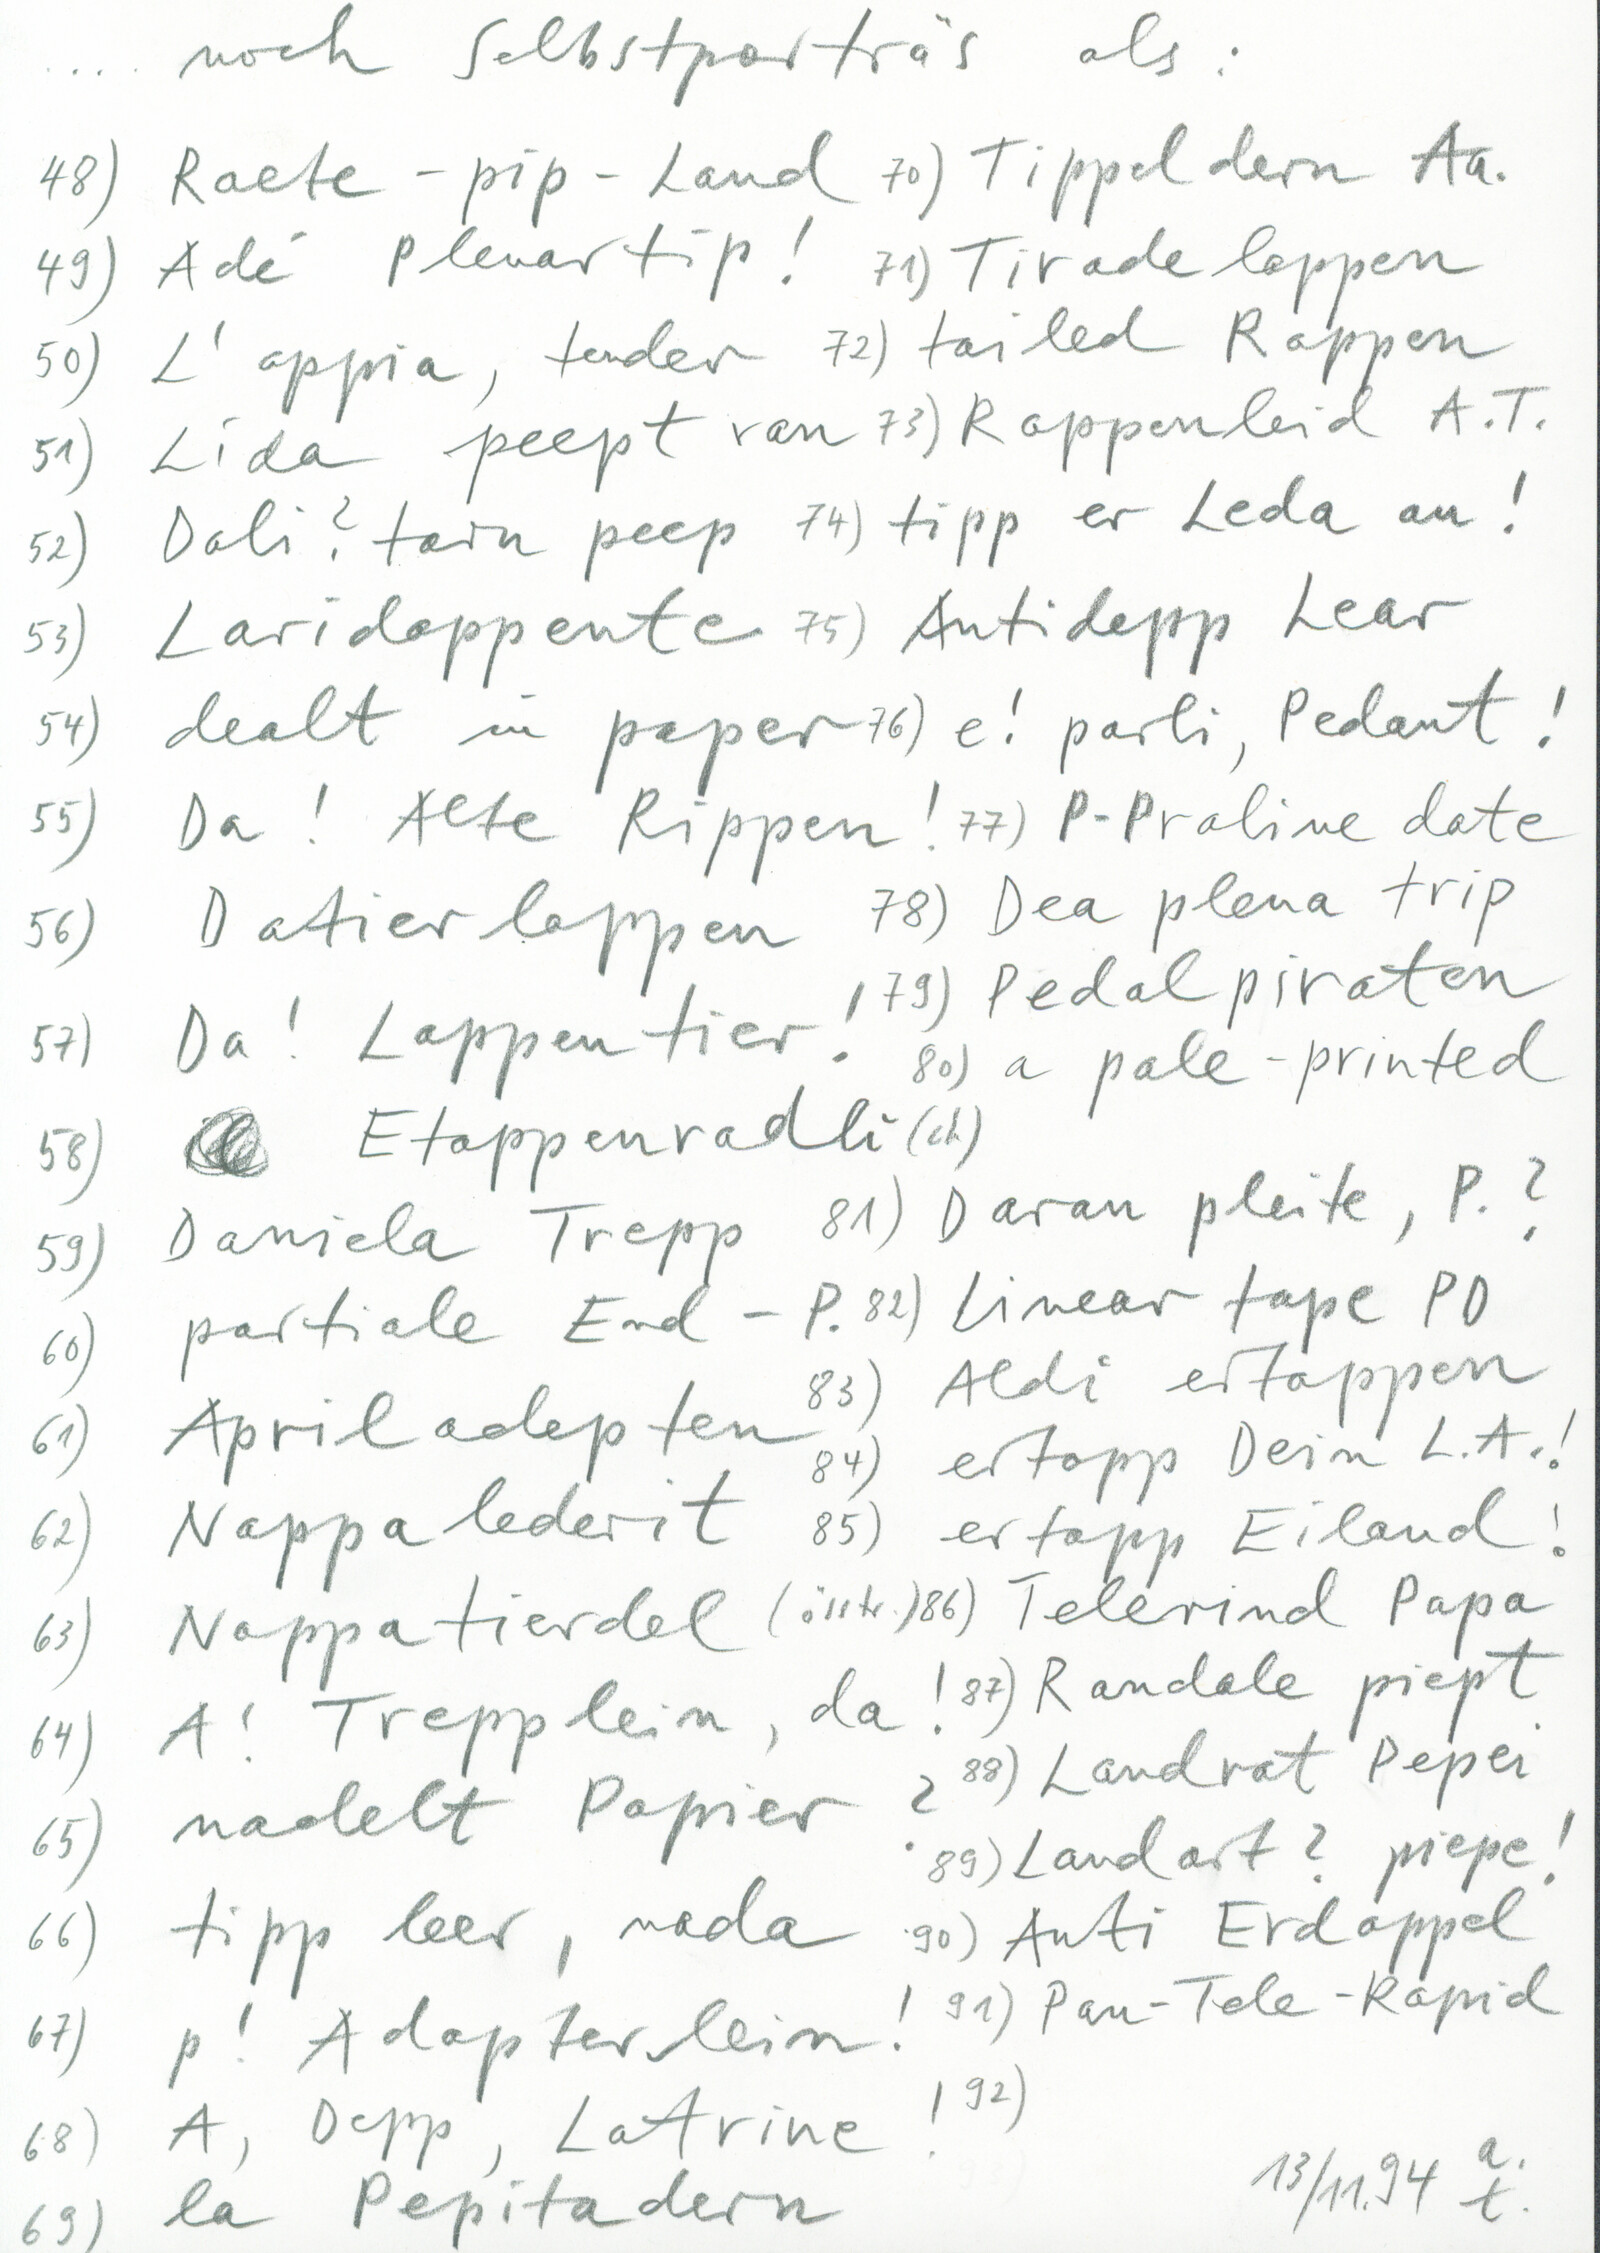 .... noch Selbstporträs als:
48) Raete-pip-Land
49) Adé Plenartip!
50) L'appia, tender
51) Lida peept ran
52) Dali? tarn peep
53) Laridappente
54) dealt in paper
55) Da! Alte Rippen!
56) Datierlappen
57) Da! Lappentier!
58) Etappenradli (ch)
59) Daniela Trepp
60) partiale End-P.
61) Apriladepten
62) Nappalederit
63) Nappatierdel (östr.)
64) A! Trepplein, da!
65) nadelt Papier?
66) tipp leer, nada
67) p! Adapterlein!
68) A, Depp, Latrine!
69) la Pepitadern
70) Tippeldern Aa.
71) Tiradelappen
72) tailed Rappen
73) Rappenleid A.T.
74) tipp er Leda an!
75) Antidepp Lear
76) e! parli, Pedant!
77) P-Praline date
78) Dea plena trip
79) Pedalpiraten
80) a pale-printed
81) Daran pleite, P.?
82) Linear tape PD
83) Aldi ertappen
84) ertapp Dein L.A.!
85) ertapp Eiland!
86) Telerind Papa
87) Randale piept
88) Landrat Pepei
89) Landart? piepe!
90) Anti Erdappel
91) Pan-Tele-Rapid
92)
13/11.94 a.
t.